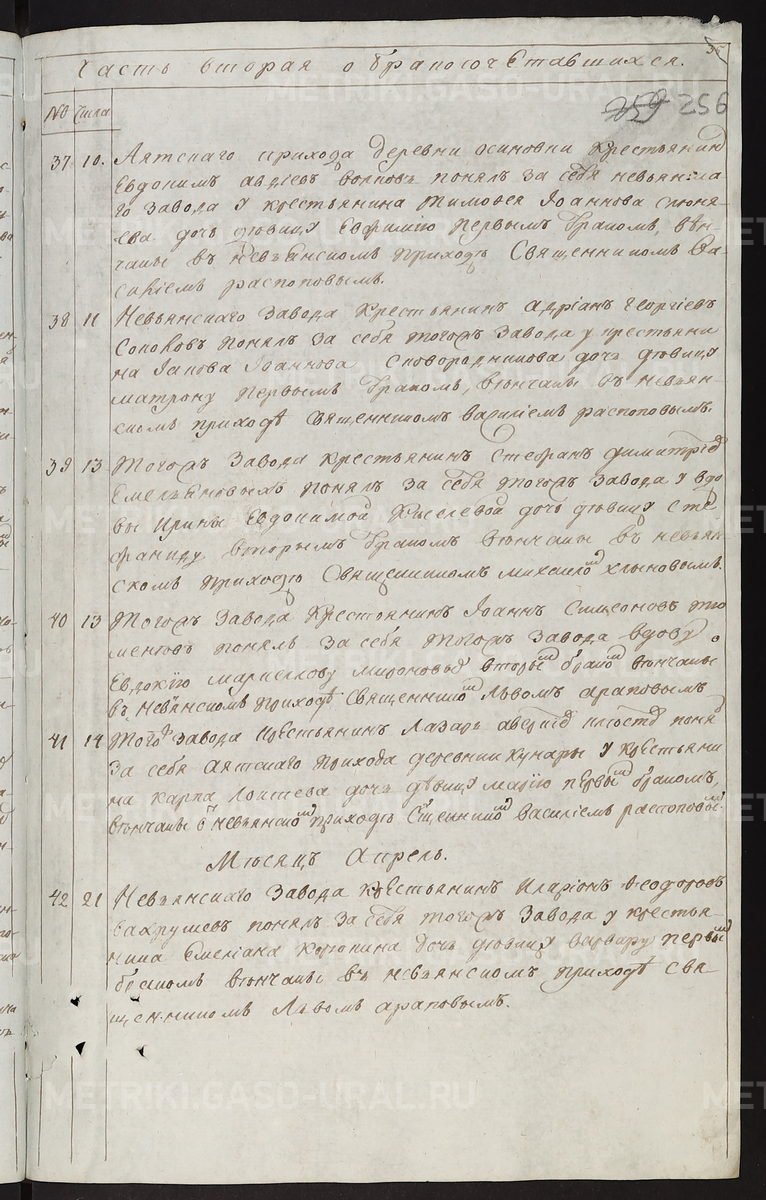 Часть вторая о бракосочетавшихся.
259 256
№ Числа
37. 10. Аятскаго прихода деревни осиновки крестьянинъ
Евдокимъ авдіевъ волковъ понялъ за себя невьянска
го завода у крестьянина тимофея Іоаннова
ева дочь дѣвицу Евфимію первымъ бракомъ, вѣн-
чаны въ невьянскомъ приходѣ Священникомъ Ва-
силіемъ распоповымъ.
38 11 Невьянскаго завода крестьянинъ адріанъ георгіевъ
понялъ за себя тогожъ завода у крестьяни
на Іакова Іоаннова Сковородникова дочь дѣвицу
матрону первымъ бракомъ, вѣнчаны въ невьян-
скомъ приходѣ священникомъ василіемъ распоповымъ.
39 13. Тогожъ завода крестьянинъ Стефанъ димитріевъ
Емельяновыхъ понялъ за себя тогожъ завода у вдо
вы ирины Евдокимовой Киселевой дочь дѣвицу сте
фаниду вторымъ бракомъ вѣнчаны въ невьян
скомъ приходѣ Священникомъ михаиломъ хлыновымъ.
40 13 Тогожъ завода крестьянинъ Іоаннъ Симеоновъ
ментовъ понялъ за себя тогожъ завода вдову
Евдокію маркеллову миронову вторымъ бракомъ вѣнчаны
въ невьянскомъ приходѣ Священникомъ львомъ араповымъ
41 14 Тогожъ завода крестьянинъ лазарь понялъ
за себя аятскаго прихода деревни кунары у крестьяни
на карпа дочь дѣвицу марію первымъ бракомъ,
вѣнчаны въ невьянскомъ приходѣ Священникомъ василіемъ распоповымъ.
Мѣсяцъ Апрель.
42 21 Невьянскаго завода крестьянинъ иларіонъ Феодоровъ
вахрушевъ понялъ за себя тогожъ завода у крестья-
нина Емеліана Корюкина дочь дѣвицу варвару первымъ
бракомъ вѣнчаны въ невьянскомъ приходѣ свя-
щенникомъ Львомъ араповымъ.
METRIKI.GASO-URAL.RU